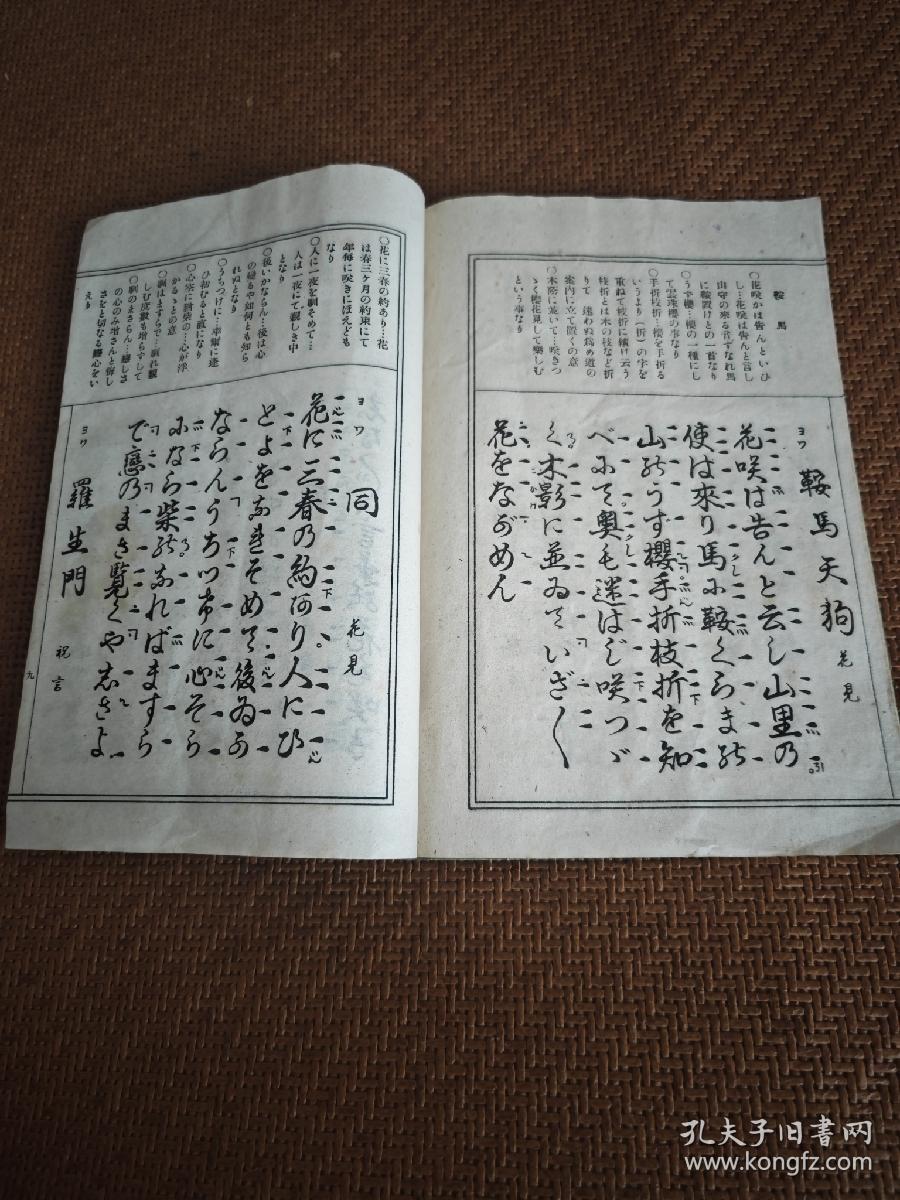 鞍馬
○花咲かば告んといひ
し…花咲ば告んと言し
山守の來る音すなれ馬
に鞍置けとの一首なり
○うず櫻…櫻の一種にし
て雲珠櫻の事なり
○手折枝折…櫻を手折る
いうより(折)の字を
重ねて枝折に續け云う
枝折とは木の枝など折
りて迷わぬ爲め道の
案内に立て置くの意
○木蔭に並いて…咲きつ
ゞく櫻花見して樂しむ
という事なり
ヨワ 鞍馬天狗 花見
花咲は告んと云し山里の
使は來り馬に鞍くらま能
山能うす櫻手折枝折を知
べにて奥も迷はじ咲つゞ
く木影に並ゐていざ〳〵
花をながめん
○花に三春の約あり…花
は春三ケ月の約束にて
年毎に咲きにほえども
なり
○人に一夜を馴そめて…
人は一夜にて親しき中
となり
○後いかならん…後は心
の變るや如何とも知ら
れぬとなり
○うちつけに…率爾に逢
ひ初むると直になり
○心空に楢柴の…心が浮
かるゝとの意
○馴はますらで…馴れ親
しむ度數も増らずして
○戀のまさらん…戀しさ
の心のみ増さんと悔し
さを云切なる戀心をい
えり
ヨワ 同 花見
花に三春の約あり人にひ
とよをなれそめて後ゐか
ならんうちつけに心そら
になら柴能なれはますら
で戀のまさ覧くやしさよ
ヨワ 羅生門 祝言
九
孔夫子旧书网
www.kongfz.com